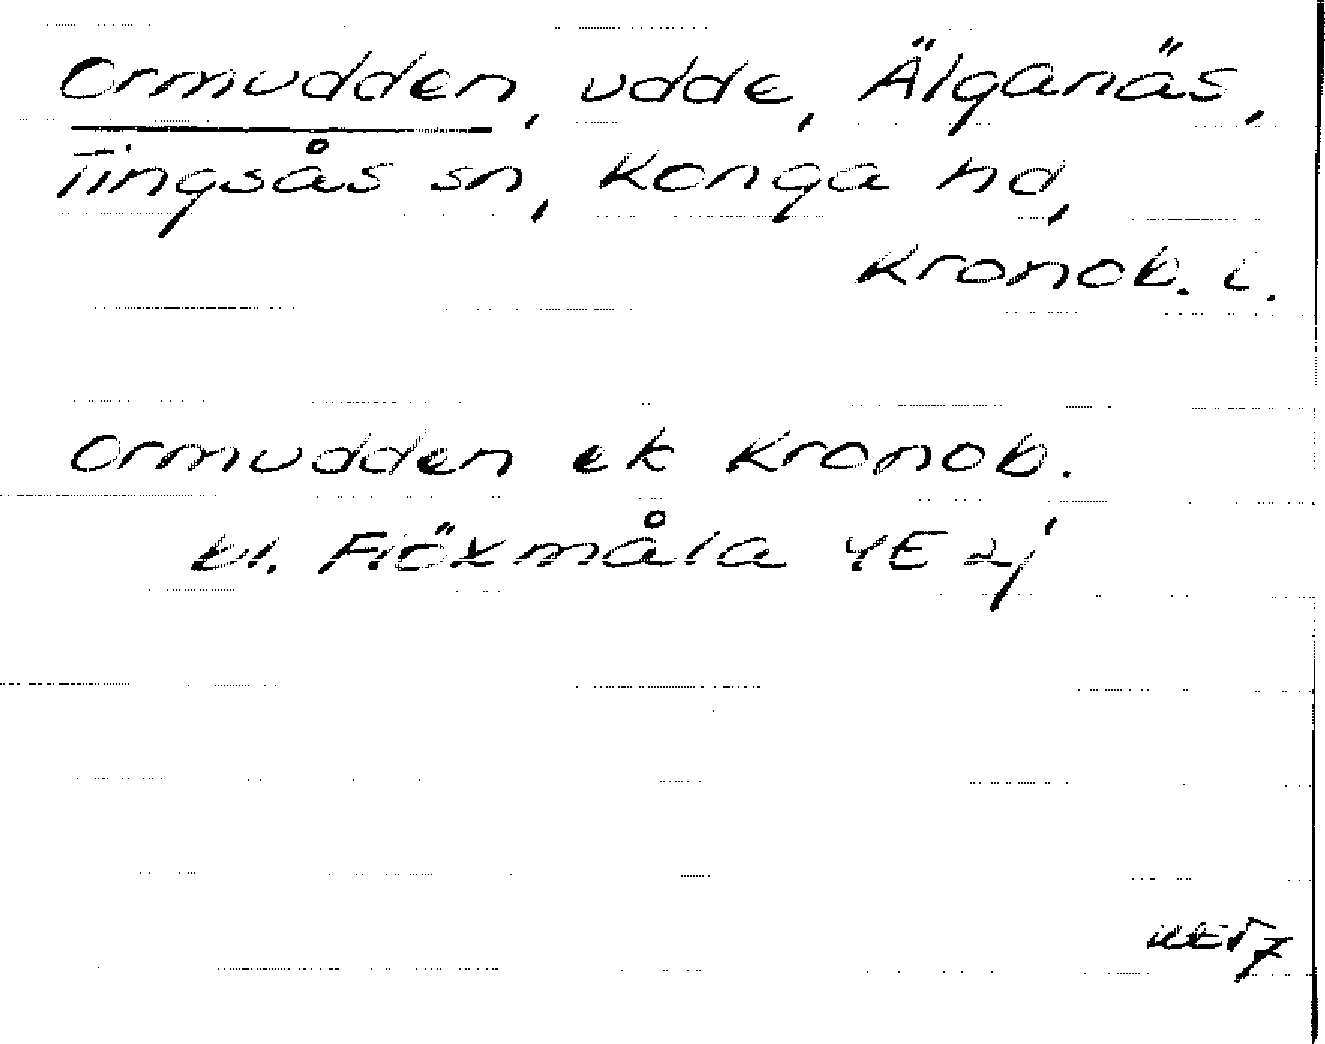 Ormudden, udde, Älganäs,
Tingsås sn, Konga hd,
Kronob. l.
Ormudden ek Kronob.
bl. Fiöxmåla 4E 2j